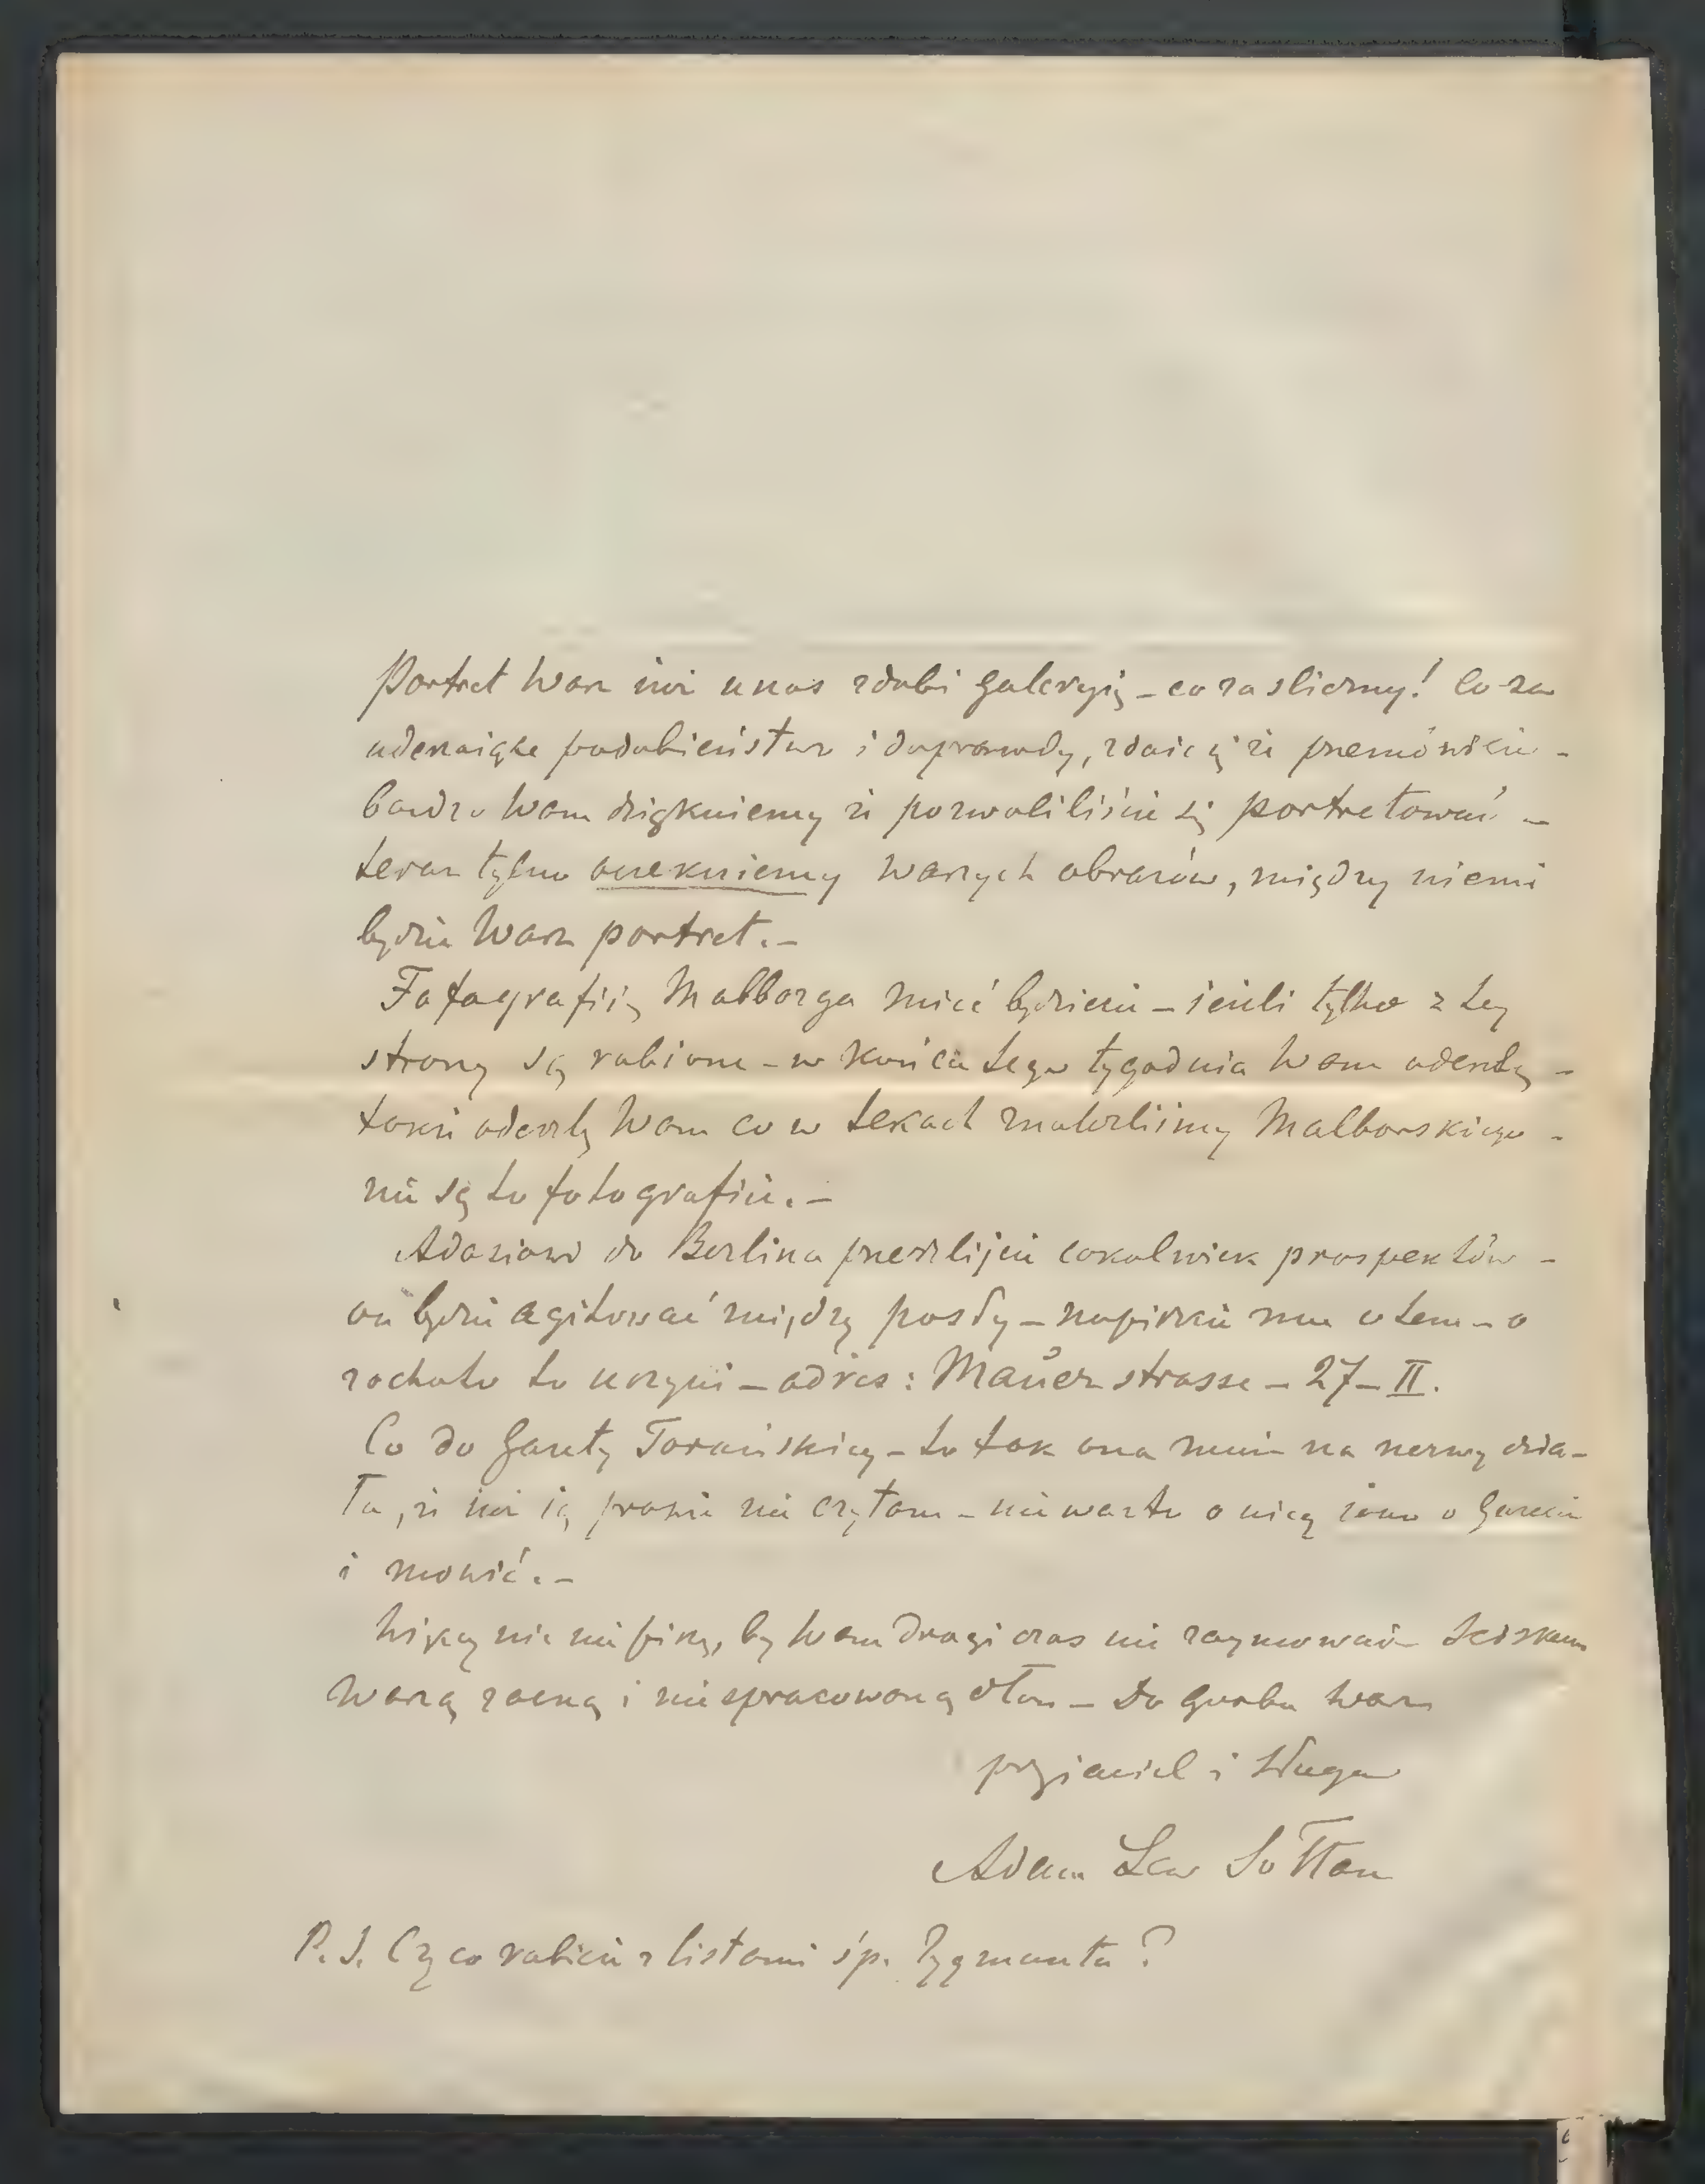 Portret Wasz iuż u nas zdobi Galeryią – co za śliczny! Co za
uderzaiące podobieństwo i doprawdy, zdaie się że przemówicie –
bardzo Wam dziękuiemy że pozwoliliście się portretować –
teraz tylko oczekuiemy Waszych obrazów, między niemi
będzie Wasz portret. –
Fotografiię Malborga mieć będziecie – ieżeli tylko z tey
strony są robione – w końcu tego tygodnia Wam odeszlę –
także odeszlę Wam co w tekach znaleźliśmy Malborskiego –
nie są to fotografiie. –
Adasiowi do Berlina prześlijcie cokolwiek prospektów –
on będzie agitować między posły – napiszcie mu o tem – a
zochoto to uczyni – adres: Mauerstrasse – 27 – II.
Co do Gazety Toruńskiey – to tak ona mnie na nerwy dzia-
ła, że iuż ią prawie nie czytam – nie warto o niey iako o
i mówić. –
Więcey nic nie piszę, by Wam drogi czas nie zaymować – ściskam
Waszą zacną i niespracowaną dłoń – Do grobu Wasz
przyiaciel i sługa
Adam Lew Sołtan
P. S. Czy co robicie z listami śp. Zygmunta?